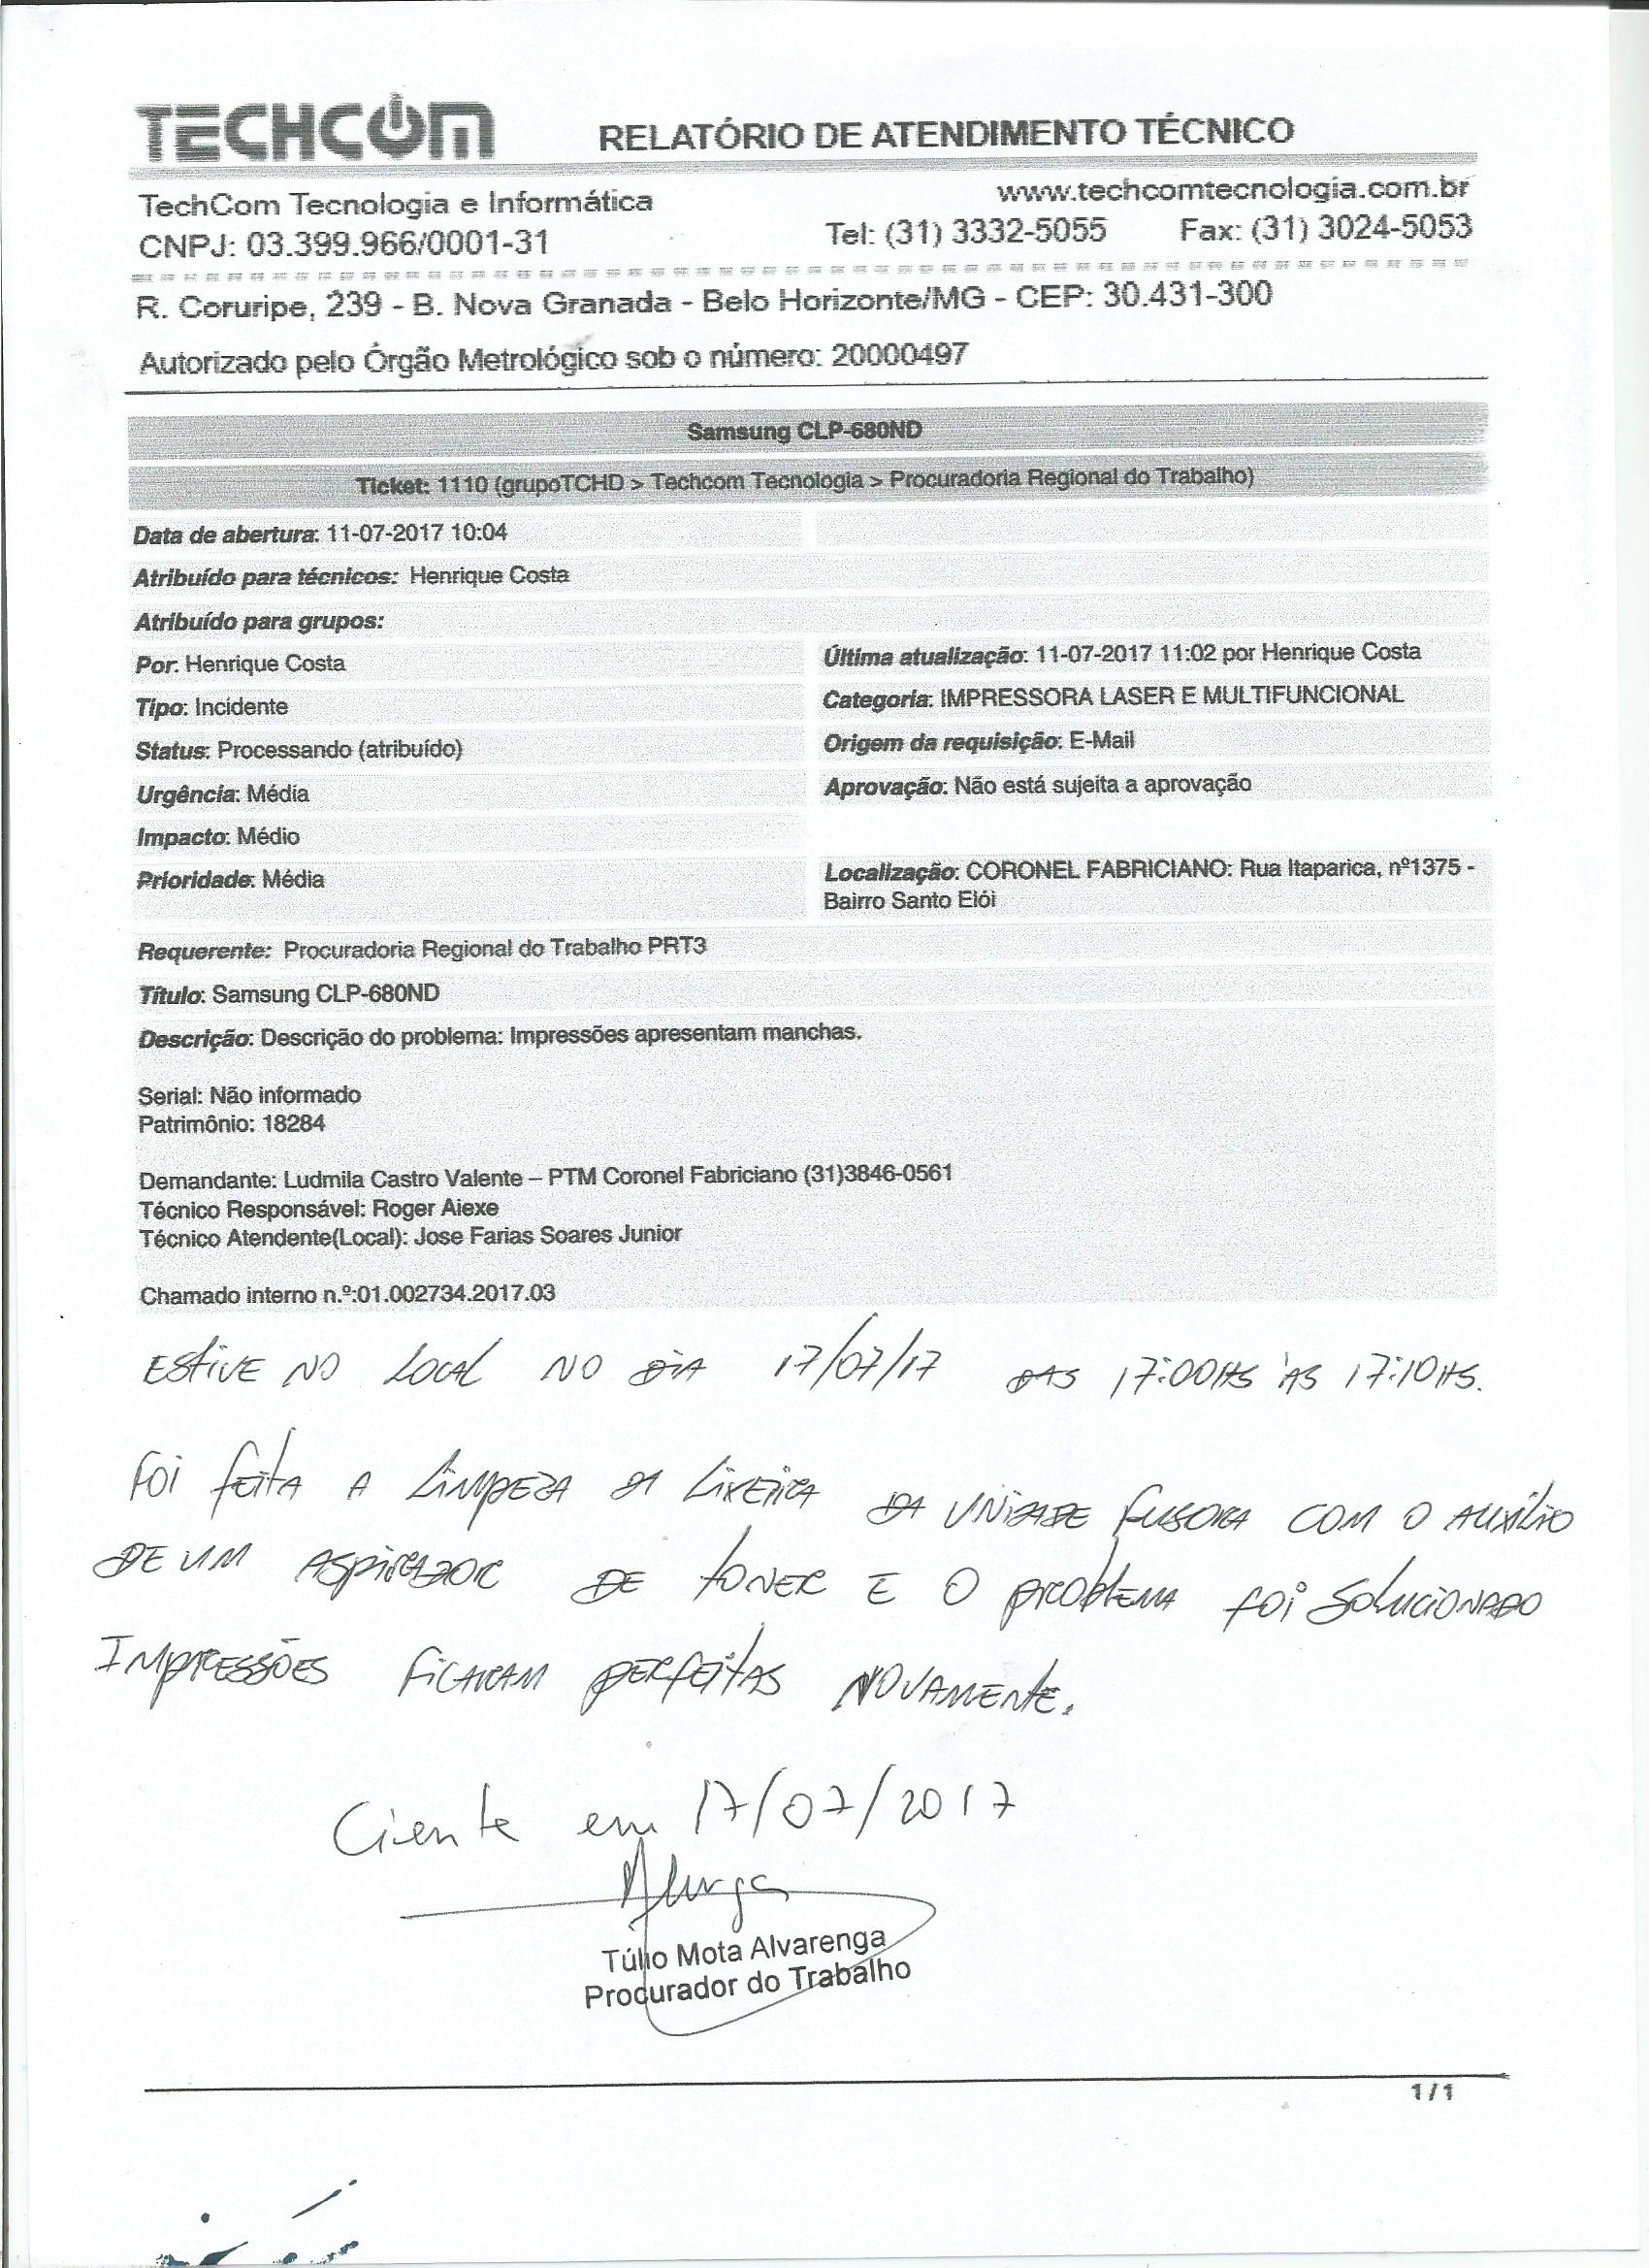 TECHCOM
RELATÓRIO DE ATENDIMENTO TÉCNICO
TechCom Tecnologia e Informática
www.techcomtecnologia.com.br
CNPJ: 03.399.966/0001-31
Tel: (31) 3332-5055 Fax: (31) 3024-5053
R. Coruripe, 239 - B. Nova Granada - Belo Horizonte/MG - CEP: 30.431-300
Autorizado pelo Órgão Metrológico sob o número: 20000497
Samsung CLP-680ND
Ticket: 1110 (grupoTCHD > Techcom Tecnologia > Procuradoria Regional do Trabalho)
Data de abertura: 11-07-2017 10:04
Atribuído para técnicos: Henrique Costa
Atribuído para grupos:
Por: Henrique Costa
Última atualização: 11-07-2017 11:02 por Henrique Costa
Tipo: Incidente
Categoria: IMPRESSORA LASER E MULTIFUNCIONAL
Status: Processando (atribuído)
Origem da requisição: E-Mail
Urgência: Média
Aprovação: Não está sujeita a aprovação
Impacto: Médio
Prioridade: Média
Localização: CORONEL FABRICIANO: Rua Itaparica, nº1375 -
Bairro Santo Elói
Requerente: Procuradoria Regional do Trabalho PRT3
Título: Samsung CLP-680ND
Descrição: Descrição do problema: Impressões apresentam manchas.
Serial: Não informado
Patrimônio: 18284
Demandante: Ludmila Castro Valente – PTM Coronel Fabriciano (31)3846-0561
Técnico Responsável: Roger Aiexe
Técnico Atendente(Local): Jose Farias Soares Junior
Chamado interno n.º:01.002734.2017.03
ESTIVE NO LOCAL NO DIA 17/07/17 DAS 17:00HS ÀS 17:10HS.
FOI FEITA A LIMPEZA DA LIXEIRA DA UNIDADE FUSORA COM O AUXÍLIO
DE UM ASPIRADOR DE TONER E O PROBLEMA FOI SOLUCIONADO
IMPRESSÕES FICARAM PERFEITAS NOVAMENTE.
Ciente em 17/07/2017
Túlio Mota Alvarenga
Procurador do Trabalho
1 / 1